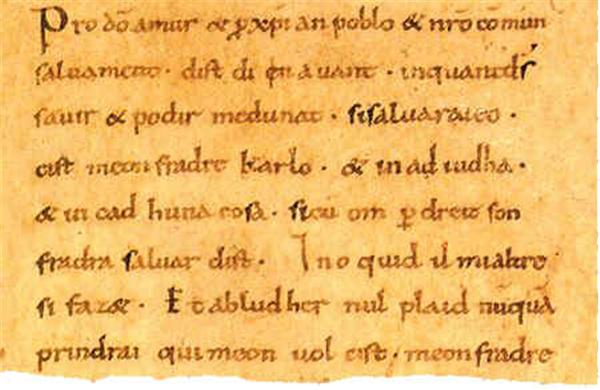 Pro dõ amur & ꝑ xp̄ian poblo & nr̄o cōmun
saluament · dist di en auant · inquantds̄
sauir & podir medunat · sisaluaraieo ·
cist meon fradre karlo · & in ad iudha ·
& in cad huna cosa · sicū om ꝑ dreit son
fradra saluar dist · Ino quid il mialtre
si faz& · Et abludher nul plaid nūquā
prindrai qui meon uol cist · meon fradre